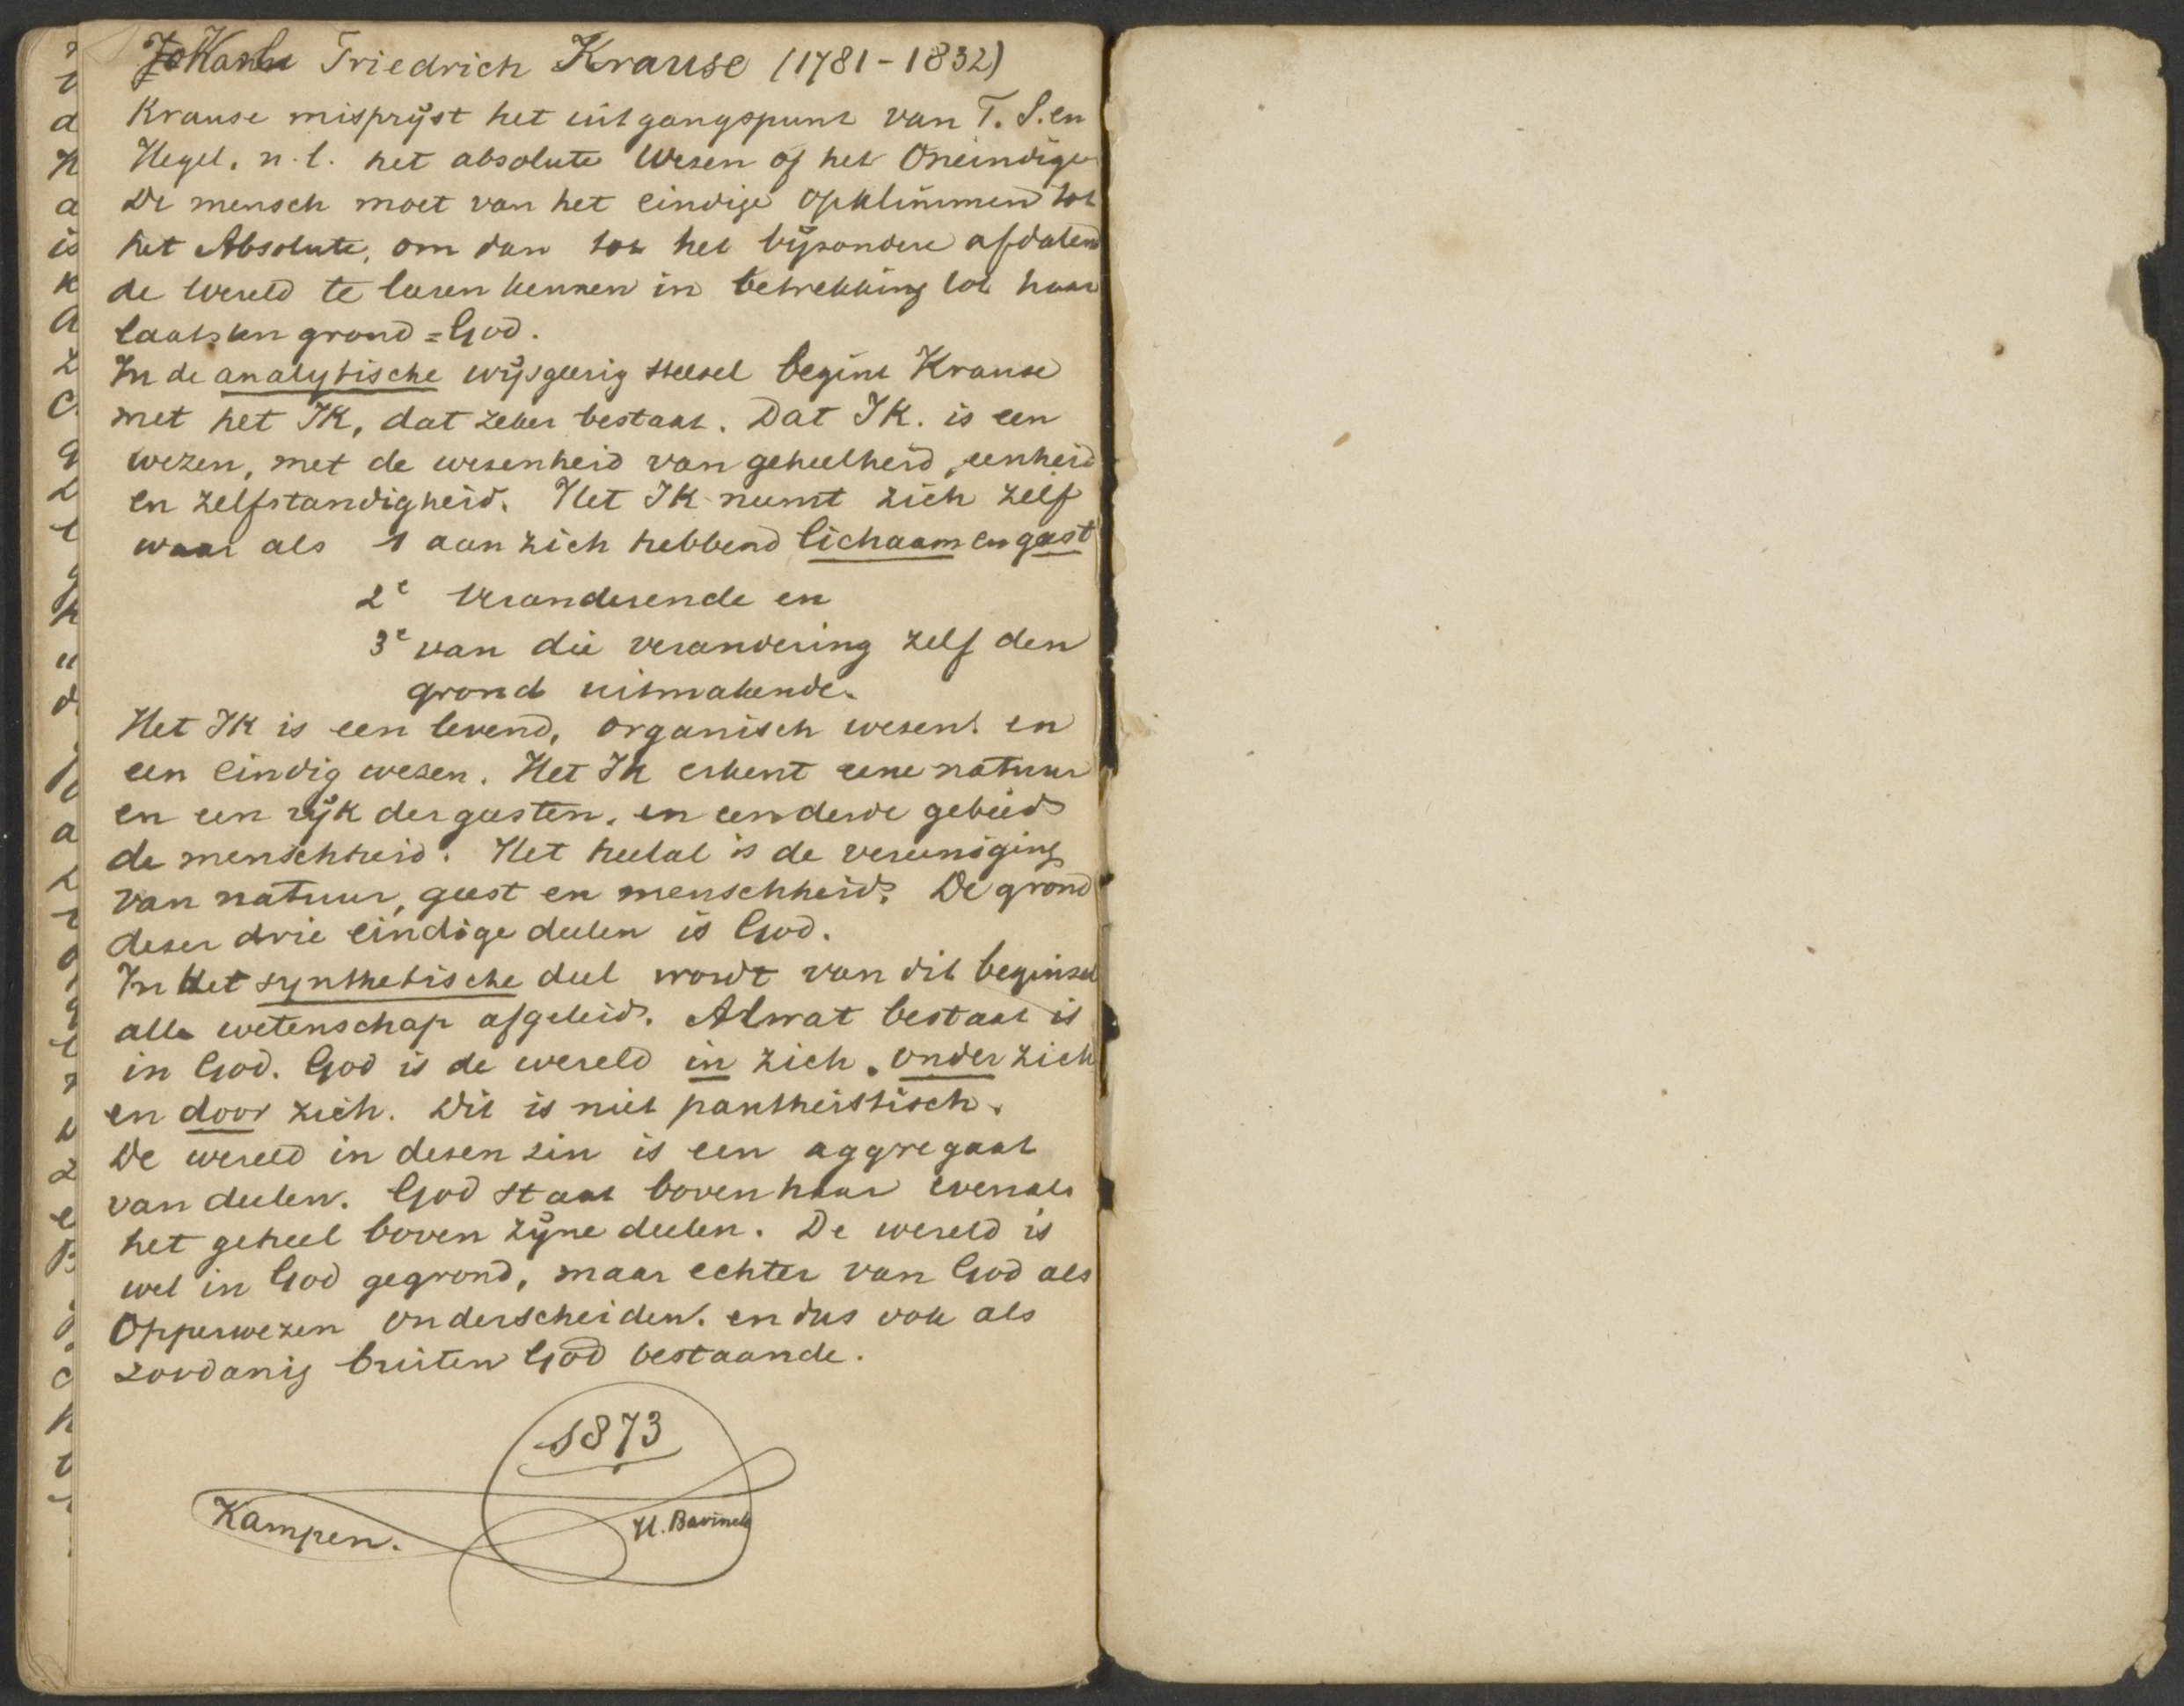 Karl Friedrich Krause (1781-1832)
Krause misprijst het uitgangspunt van F. S. en
Hegel, n.l. het absolute Wezen of het Oneindige
De mensch moet van het eindige opklimmen tot
het Absolute, om dan tot het bijzondere afdalend
de wereld te leeren kennen in betrekking tot haar
laatsten grond = God.
In de analytische wijsgeerig stelsel begint Krause
met het IK, dat zeker bestaat. Dat IK. is een
wezen, met de wesenheid van geheelheid, eenheid
en zelfstandigheid. Het IK neemt zich zelf
waar als 1 aan zich hebbend lichaam en geest
2e Veranderende en
3e van die verandering zelf den
grond uitmakende.
Het IK is een levend, organisch wesen. en
een eindig wezen. Het IK erkent eene natuur
en een rijk der geesten. en een derde gebied
de menschheid. Het heelal is de vereeniging
van natuur, geest en menschheid. De grond
dezer drie eindige deelen is God.
In Het synthetische deel wordt van dit beginsel
alle wetenschap afgeleid. Al wat bestaat is
in God. God is de wereld in zich. onder zich
en door zich. Dit is niet pantheistisch.
De wereld in dezen zin is een aggregaat
van deelen. God staat boven haar evenals
het geheel boven zijne deelen. De wereld is
wel in God gegrond, maar echter van God als
Opperwezen onderscheiden. en dus ook als
zoodanig buiten God bestaande.
1873
Kampen.
H. Bavinck